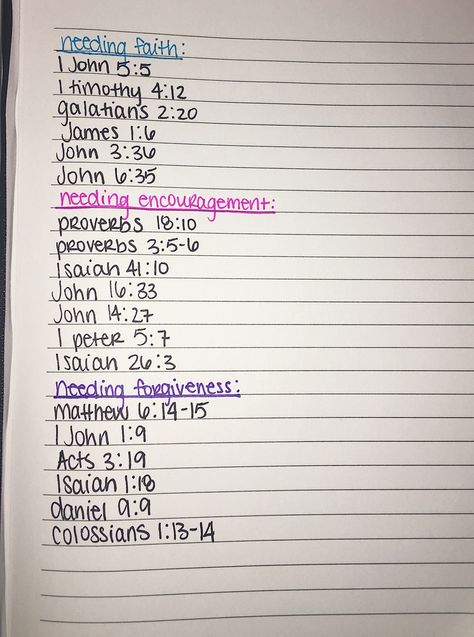 needing faith:
1 John 5:5
1 timothy 4:12
galatians 2:20
James 1:6
John 3:36
John 6:35
needing encouragement:
proverbs 18:10
proverbs 3:5-6
Isaiah 41:10
John 16:33
John 14:27
1 peter 5:7
Isaiah 26:3
needing forgiveness:
matthew 6:14-15
1 John 1:9
Acts 3:19
Isaiah 1:18
daniel 9:9
colossians 1:13-14